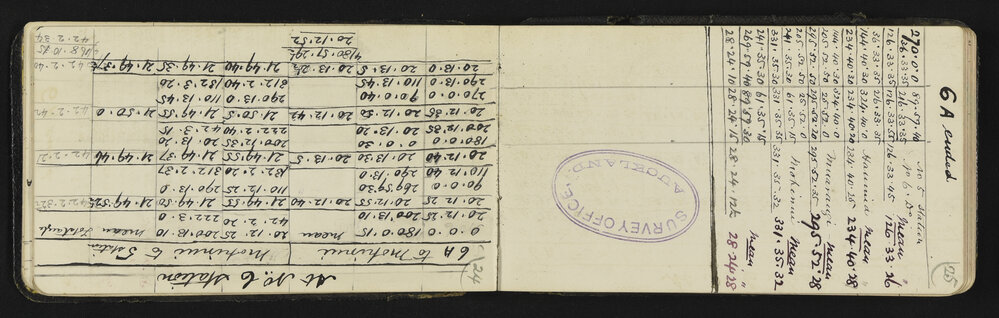 24
At No. 6 Station
6A to Motuinui Motuinui to 5 Station
0.0.0 180.0.15 mean mean Totals
20.12.25 200.13.10 20.12.25 200.13.10
20.12.25 20.12.55 20.12.40 42.2.20 222.3.0
21.49.55 21.49.50 21.49.52½ 42.2.32½
90.0.0 269.59.30 110.12.25 290.13.0
110.12.40 290.13.0 132.2.20 312.2.37
20.12.40 20.13.30 20.13.5 21.49.55 21.49.37 21.49.46
180.0.0 0.0.30 200.12.35 20.13.20
200.12.35 20.13.20 222.2.40 42.3.15
20.12.35 20.12.50 20.12.42 21.50.5 21.49.55 21.50.0 42.2.42
270.0.0 90.0.40 290.13.0 110.13.45
290.13.0 110.13.45 312.2.40 132.3.20
20.13.0 20.13.5 20.13.2½ 21.49.40 21.49.35 21.49.37½ 42.2.40
4)80.51.29½ 168.10.45
20.12.52 42.2.34
25
6A ended
270.0.0 89.59.40 No 5 Station
36.33.35 216.33.35 No 6 mean
126.33.35 126.33.55 126.33.45 126 33 26
36.33.35 216.33.35
144.40.30 324.40.0 mean
234.40.30 234.40.20 234.40.25 234.40.28
144.40.30 324.40.0 mean
205.52.50 25.52.0
295.52.50 295.52.20 295.52.35 295.52.28
205.52.50 25.52.0 Motuinui mean
241.35.30 61.35.15
331.35.30 331.35.35 331.35.32 331.35.32
241.35.30 61.35.15
269.59.40 89.59.30 mean
28.24.10 28.24.15 28.24.12½ 28 24 28
SURVEY OFFICE, AUCKLAND.